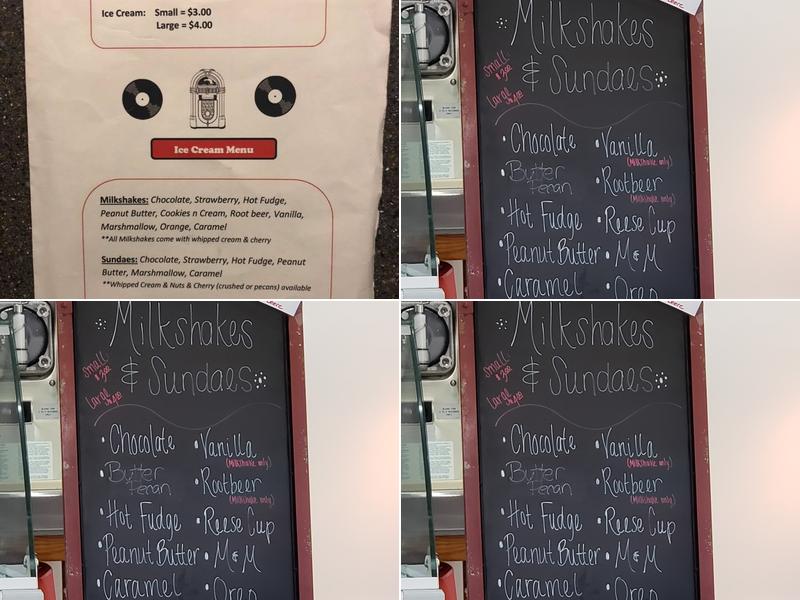 Ice Cream: Small = $3.00
Large = $4.00
Ice Cream Menu
Milkshakes: Chocolate, Strawberry, Hot Fudge,
Peanut Butter, Cookies n Cream, Root beer, Vanilla,
Marshmallow, Orange, Caramel
**All Milkshakes come with whipped cream & cherry
Sundaes: Chocolate, Strawberry, Hot Fudge, Peanut
Butter, Marshmallow, Caramel
**Whipped Cream & Nuts & Cherry (crushed or pecans) available
Milkshakes
& Sundaes
Small
$3.00
• Chocolate • Vanilla
(Milkshake only)
• Butter • Rootbeer
Pecan (Milkshake only)
• Hot Fudge • Reese Cup
• Peanut Butter • M & M
• Caramel • Oreo
Milkshakes
& Sundaes
Small
$3.00
• Chocolate • Vanilla
(Milkshake only)
• Butter • Rootbeer
Pecan (Milkshake only)
• Hot Fudge • Reese Cup
• Peanut Butter • M & M
• Caramel • Oreo
Milkshakes
& Sundaes
Small
$3.00
• Chocolate • Vanilla
(Milkshake only)
• Butter • Rootbeer
Pecan (Milkshake only)
• Hot Fudge • Reese Cup
• Peanut Butter • M & M
• Caramel • Oreo